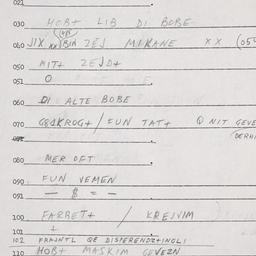 021
030 HOB+ LIB DI BOBE
040 JIX BIN ZEJ MIKANE X X (054
050 MIT+ ZEJD+
051 O
060 DI ALTE BOBE
070 GEDKROG+ / FUN TAT+ Q NIT GEVE
080 MER OFT
090 FUN VEMEN
091 — $ = —
100 FARBET+ / KREJVIM
101 +
102 FRAJNTL QE DISPERENDZ+INGLI
110 HOB+ MASKIM GEVEZN